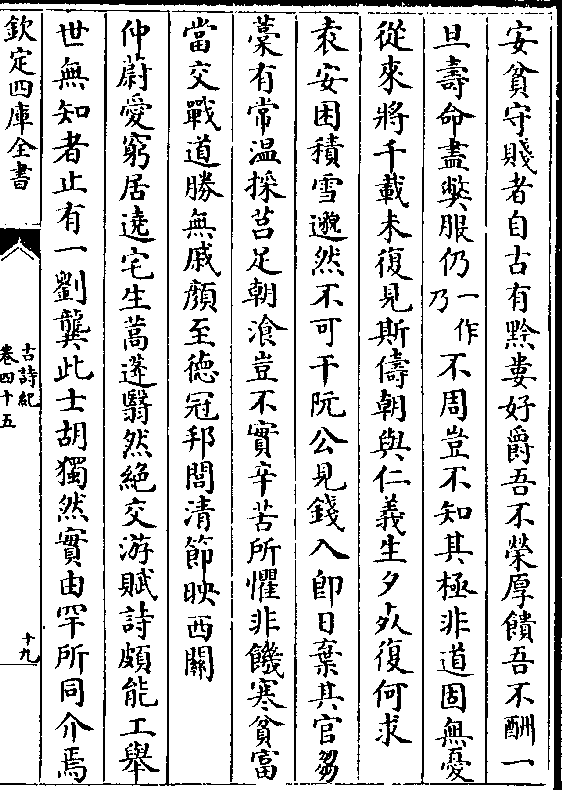 安貧守賤者自古有黔婁好爵吾不榮厚饋吾不酬一
旦壽命盡獘服仍一作乃不周豈不知其極非道固無憂
從來將千載未復見斯儔朝與仁義生夕死復何求
袁安困積雪邈然不可干阮公見錢入卽日棄其官芻
藁有常温採莒足朝飡豈不實辛苦所懼非饑寒貧富
當交戰道勝無戚顔至德冠邦閭清節映西關
仲蔚愛窮居遶宅生蒿蓬翳然絶交游賦詩頗能工舉
世無知者止有一劉龔此士胡獨然實由罕所同介焉
欽定四庫全書
古詩紀
卷四十五
十九